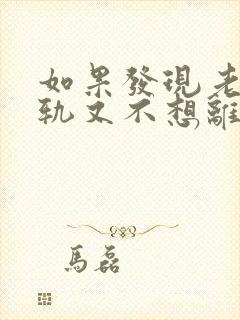 如果發現老
軌又不想離,
馬磊